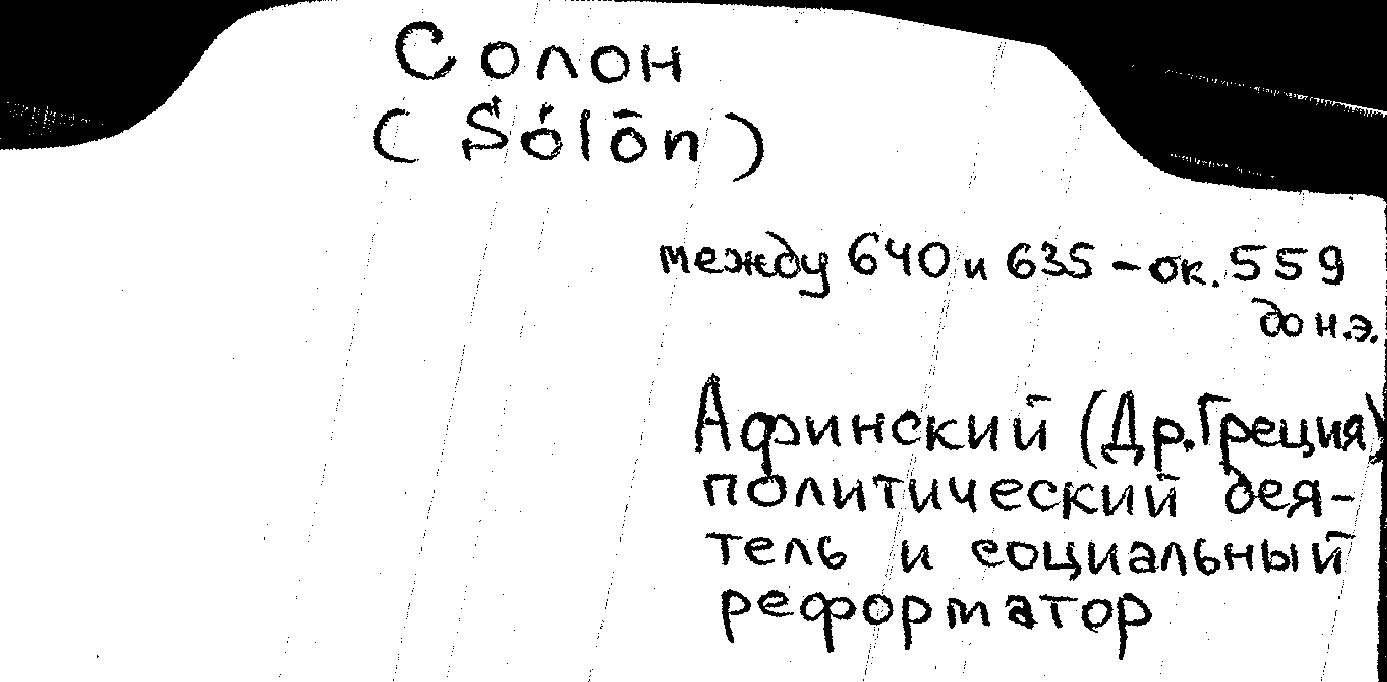 Солон
(Sólōn)
между 640 и 635 - ок. 559
до н.э.
Афинский (Др. Греция)
политический дея-
тель и социальный
реформатор